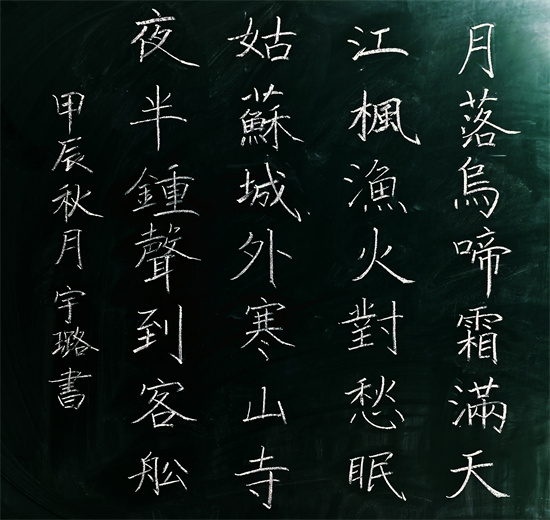 月落烏啼霜滿天
江楓漁火對愁眠
姑蘇城外寒山寺
夜半鍾聲到客舩
甲辰秋月宇璐書